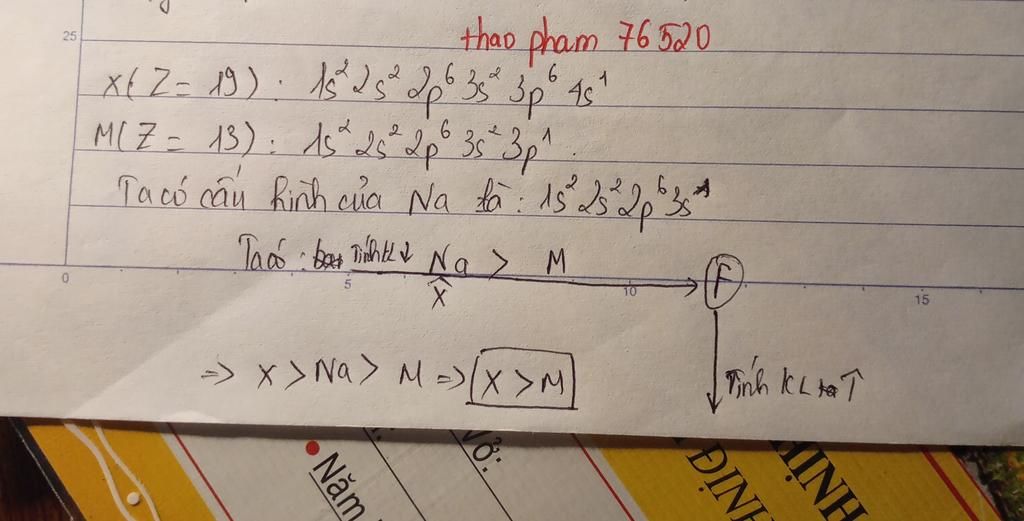 25
thao pham 76520
X(Z = 19) : 1s² 2s² 2p⁶ 3s² 3p⁶ 4s¹
M(Z = 13) : 1s² 2s² 2p⁶ 3s² 3p¹.
Ta có cấu hình của Na là : 1s² 2s² 2p⁶ 3s¹
Ta có : Tính KL ↓ Na > M
F
0 5 10 15
X
⇒ X > Na > M ⇒ X > M
Tính KL ↑
Năm
Vở:
ĐỊNH
THỊNH